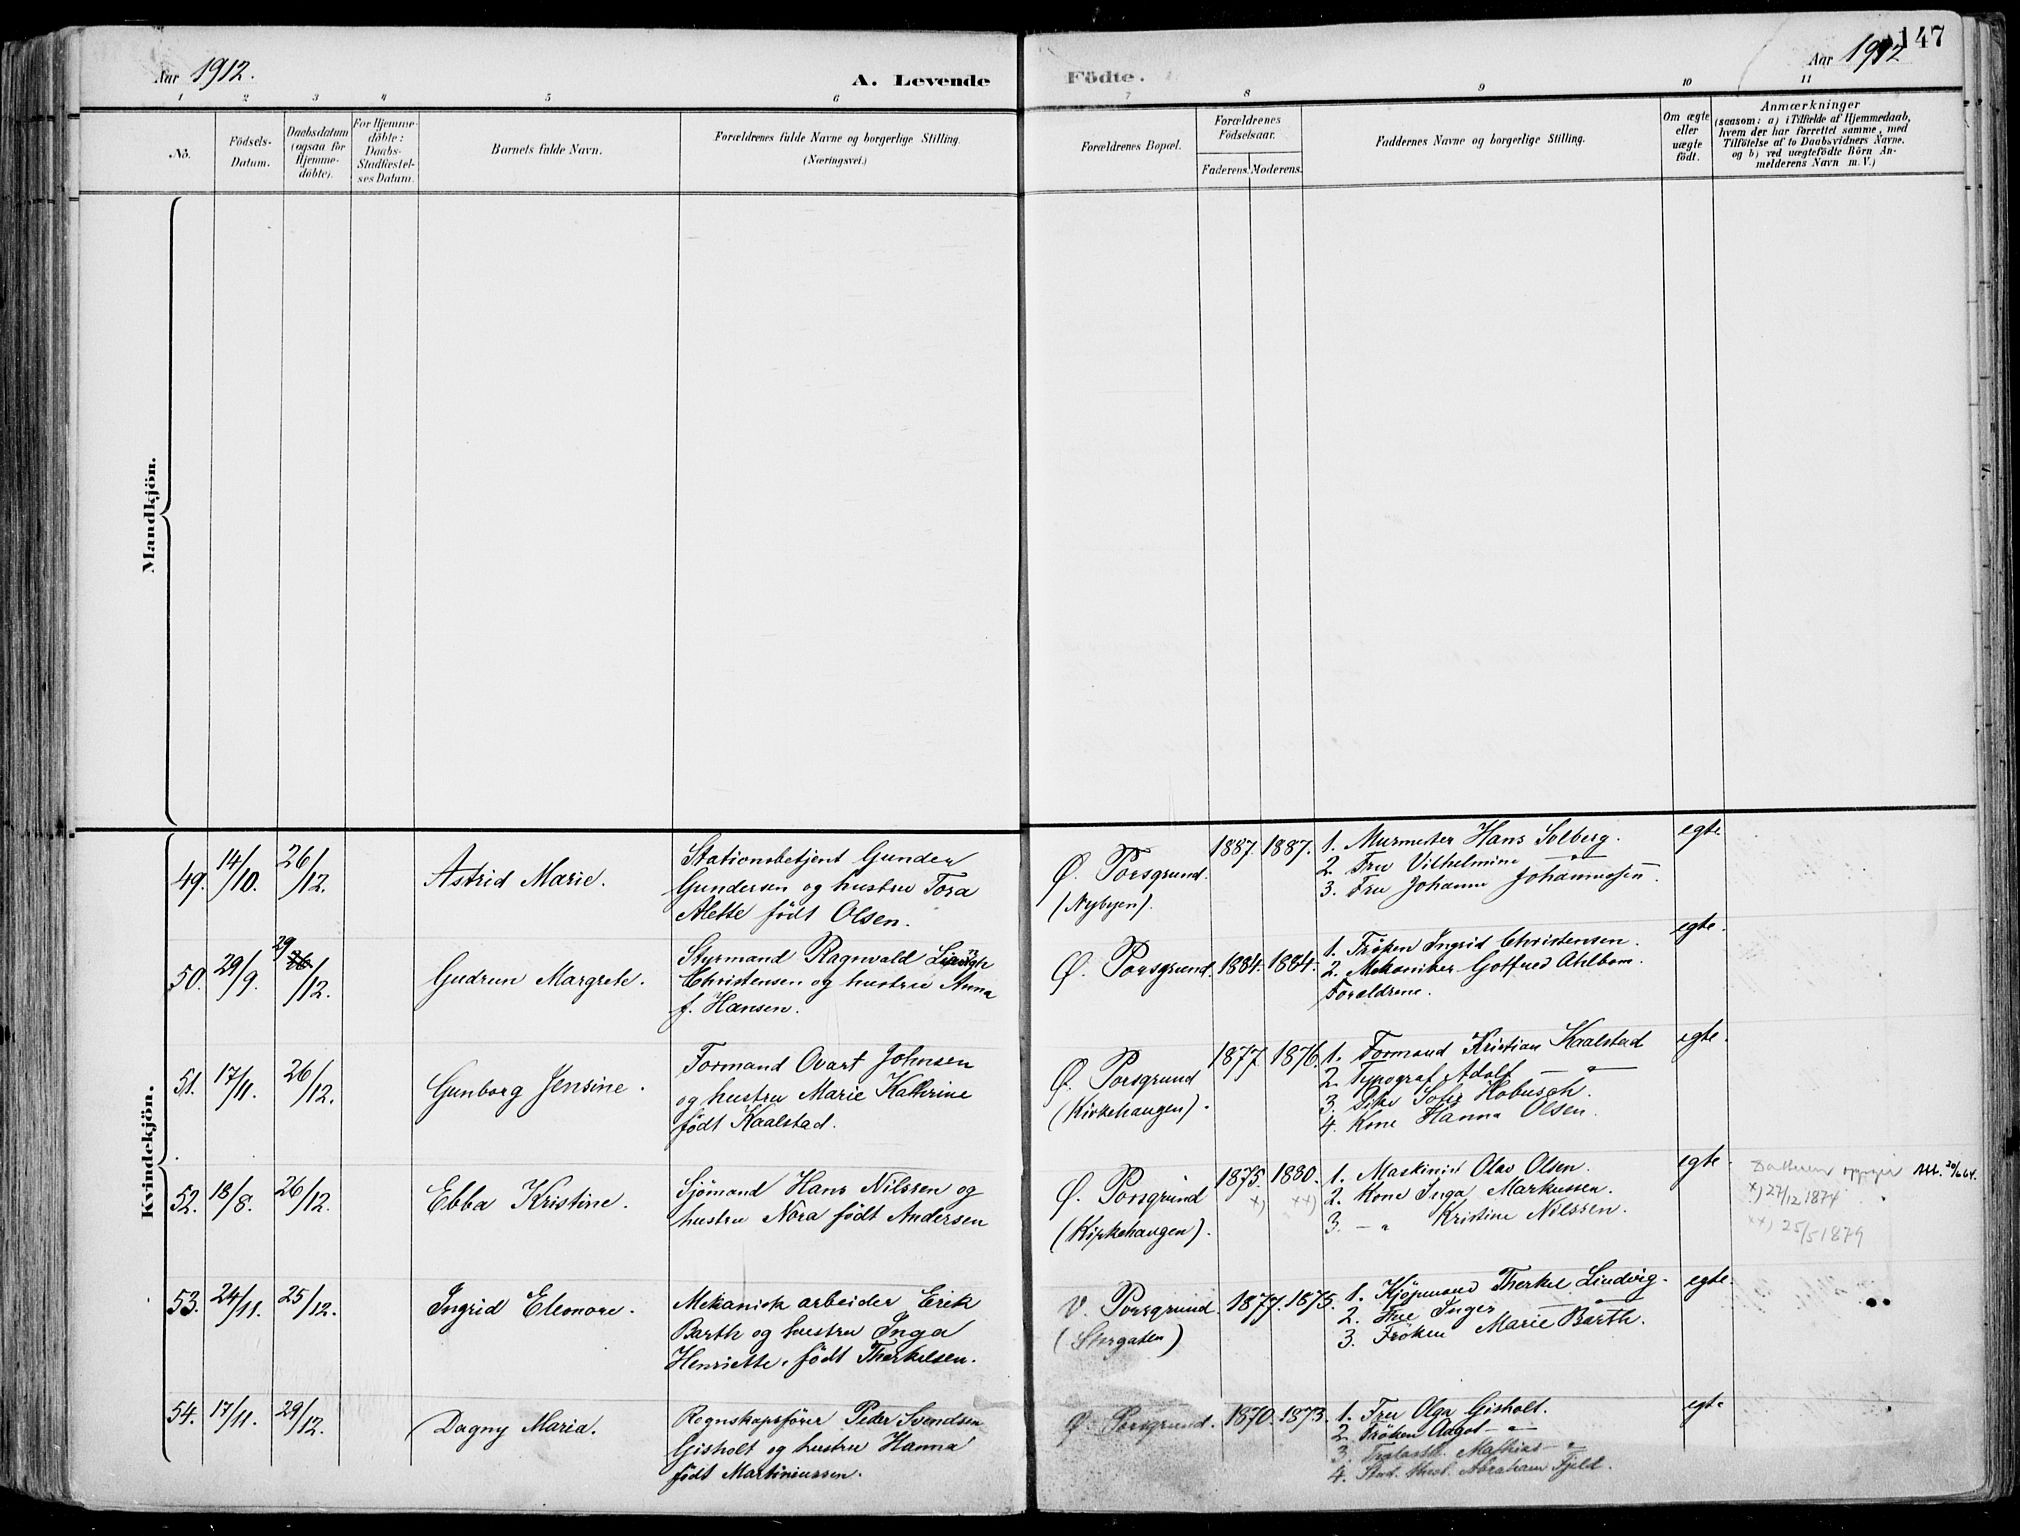 147
Aar 1912.
A. Levende
Födte.
Aar 1912
1 2 3 4 5 6 7 8 9 10 11
No.
Födsels-
Datum.
Daabsdatum
(ogsaa for
Hjemme-
döbte).
For Hjemme-
döbte:
Daabs-
Stadfæstel-
ses Datum.
Barnets fulde Navn.
Forældrenes fulde Navne og borgerlige Stilling.
(Næringsvei.)
Forældrenes Bopæl.
Forældrenes
Födselsaar.
Faderens. Moderens.
Faddernes Navne og borgerlige Stilling.
Om ægte
eller
uægte
födt.
Anmærkninger
(saasom: a) i Tilfælde af Hjemmedaab,
hvem der har forrettet samme, med
Tilföielse af to Daabsvidners Navne.
og b) ved uægtefödte Börn An-
melderens Navn m. V.)
Mandkjön.
Kvindekjön.
49. 14/10. 26/12. Astrid Marie.
Stationsbetjent Gunder
Gundersen og hustru Tora
Alette født Olsen.
Ø. Porsgrund.
(Nybyen).
1887. 1887.
1. Murmester Hans Solberg.
2. Fru Vilhelmine — „
3. Fru Johanne Johannessen.
egte.
50. 29/9. 29 26/12. Gudrun Margrete.
Styrmand Ragnvald
Christensen og hustru Anna
f. Hansen.
Ø. Porsgrund. 1884. 1884.
1. Frøken Ingrid Christensen.
2. Mekaniker Gotfred Ahlbom.
Forældrene.
egte.
51. 17/11. 26/12. Gunborg Jensine.
Formand Ovart Johnsen
og hustru Marie Kathrine
født Kaalstad.
Ø. Porsgrund
(Kirkehaugen).
1877. 1876.
1. Formand Kristian Kaalstad
2. Typograf Adolf — „
3. Pike Sofie Hobusch.
4. Kone Hanna Olsen.
egte.
52. 18/8. 26/12. Ebba Kristine.
Sjömand Hans Nilssen og
hustru Nora født Andersen
Ø. Porsgrund
(Kirkehaugen).
1875. 1880.
x) xx)
1. Maskinist Olav Olsen.
2. Kone Inga Markussen.
3. — „ Kristine Nilssen.
egte.
Datteren opgir
x) 27/12 1874
xx) 25/5 1879
53. 24/11. 25/12. Ingrid Eleonore.
Mekanisk arbeider Erik
Barth og hustru Inga
Henriette, født Therkelsen.
V. Porsgrund.
(Storgaten)
1877. 1875.
1. Kjøpmand Therkel Lindvig.
2. Frue Inger — „
3. Frøken Marie Barth.
egte.
54. 17/11. 29/12. Dagny Maria.
Regnskapsfører Peder Svendsen
Gisholt og hustru Hanna
født Martiniussen.
Ø. Porsgrund. 1870. 1873.
1. Fru Olga Gisholt.
2. Frøken Aagot — „
3. Mathias — „
4. Stud. theol. Abraham Fjeld.
egte